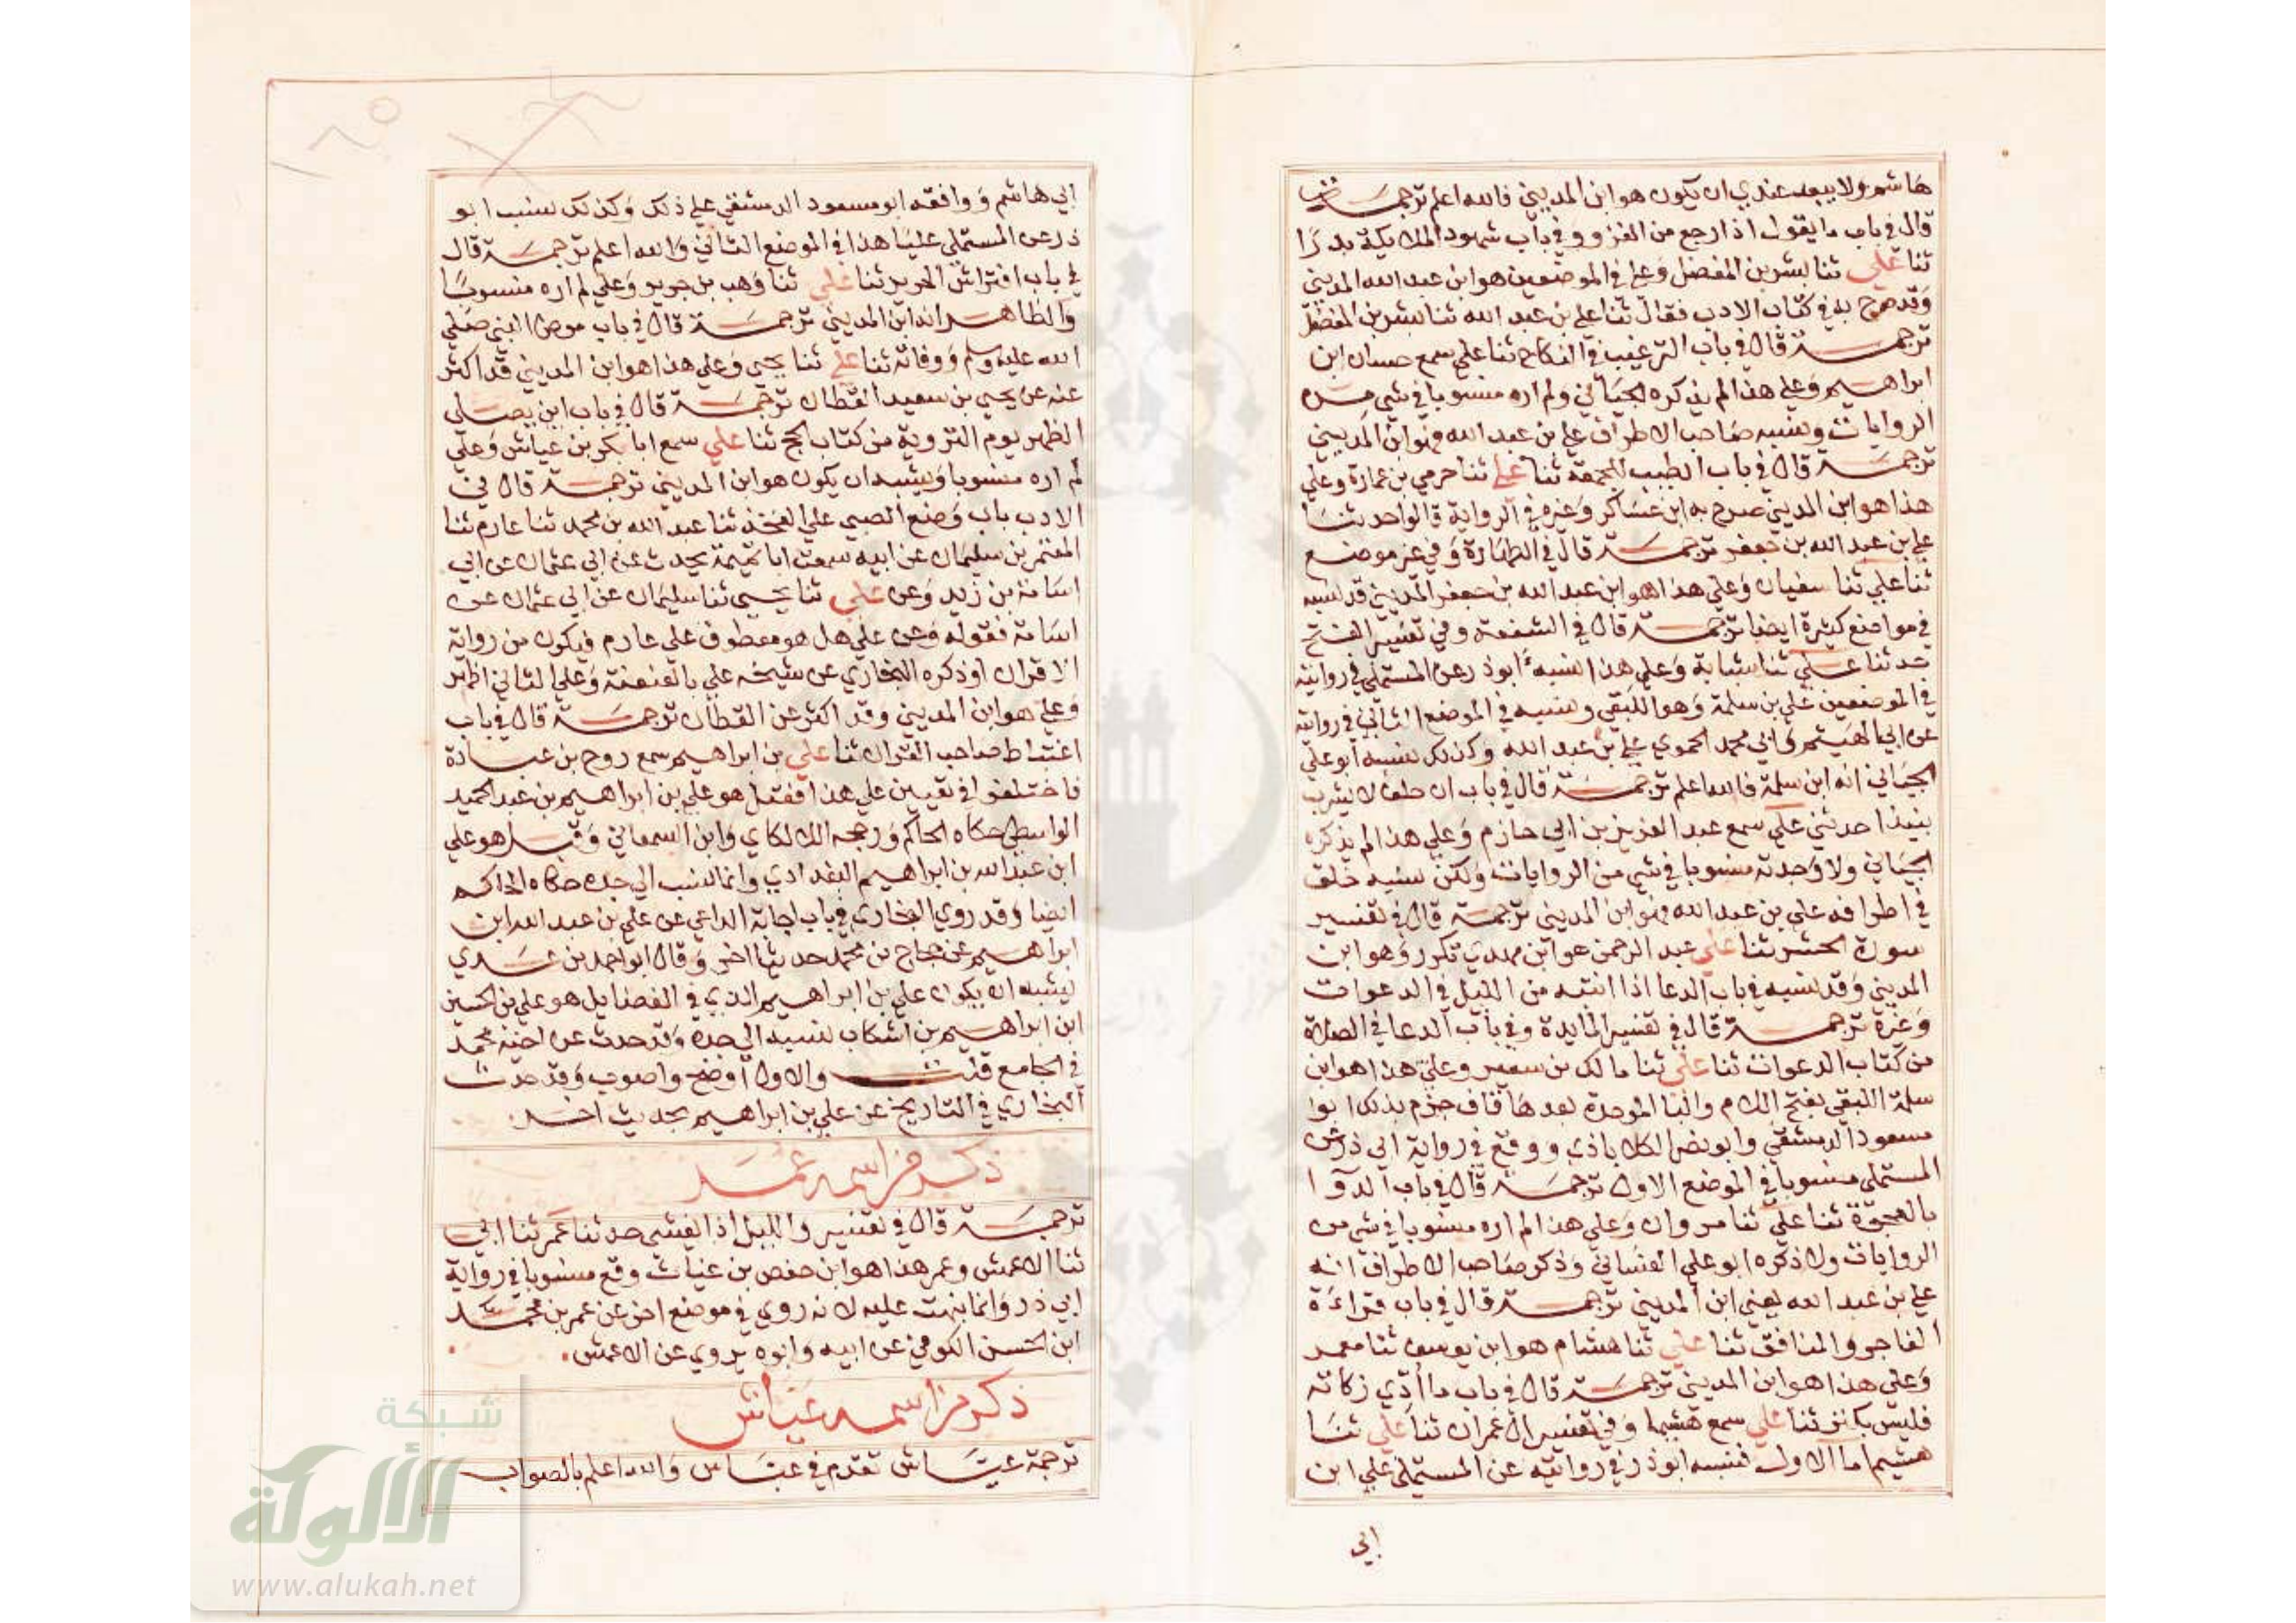 هاشم ولا يبعد عندي ان يكون هو ابن المديني فالله اعلم ترجمة
قال في باب ما يقول اذا رجع من الغزو وفي باب شهود الملايكة بدرا
ثنا علي ثنا بشر بن المفضل وعلي في الموضعين هو ابن عبد الله المديني
وقد صرح به في كتاب الادب فقال ثنا علي بن عبد الله ثنا بشر بن المفضل
ترجمة قال في باب الترغيب في النكاح ثنا علي سمع حسان ابن
ابراهيم وعلي هذا لم يذكره الجياني ولم اره منسوبا في شي من
الروايات ونسبه صاحب الاطراف علي بن عبد الله وهو ابن المديني
ترجمة قال في باب الطيب للجمعة ثنا علي ثنا حرمي بن عمارة وعلي
هذا هو ابن المديني صرح به ابن عساكر وغيره في الرواية قالوا حدثنا
علي بن عبد الله بن جعفر ترجمة قال في الطهارة وفي غير موضع
ثنا علي ثنا سفيان وعلي هذا هو ابن عبد الله بن جعفر المديني قد نسبه
في مواضع كثيرة ايضا ترجمة قال في الشفعة وفي تفسير الفتح
حدثنا علي ثنا شبابة وعلي هذا نسبه ابو ذر عن المستملي في روايته
في الموضعين علي بن سلمة وهو اللبقي ونسبه في الموضع الثاني في روايته
عن ابي الهيثم وابي محمد الحموي علي بن عبد الله وكذلك نسبه ابو علي
الجياني انه ابن سلمة فالله اعلم ترجمة قال في باب ان حلف لا يشرب
نبيذا حدثني علي سمع عبد العزيز بن ابي حازم وعلي هذا لم يذكره
الجياني ولا وجدته منسوبا في شي من الروايات ولكن نسبه خلف
في اطرافه علي بن عبد الله وهو ابن المديني ترجمة قال في تفسير
سورة الحشر ثنا علي عبد الرحمن هو ابن مهدي تكرر وهو ابن
المديني وقد نسبه في باب الدعا اذا انتبه من الليل في الدعوات
وغيره ترجمة قال في تفسير المايدة وفي باب الدعا في الصلاة
من كتاب الدعوات ثنا علي ثنا مالك بن سعير وعلي هذا هو ابن
سلمة اللبقي بفتح اللام والبا الموحدة بعدها قاف جزم بذلك ابو
مسعود الدمشقي وابو نصر الكلاباذي ووقع في رواية ابي ذر عن
المستملي منسوبا في الموضع الاول ترجمة قال في باب الدوا
بالعجوة ثنا علي ثنا مروان وعلي هذا لم اره منسوبا في شي من
الروايات ولا ذكره ابو علي الغساني وذكر صاحب الاطراف انه
علي بن عبد الله يعني ابن المديني ترجمة قال في باب قراءة
الفاجر والمنافق ثنا علي ثنا هشام هو ابن يوسف ثنا معمر
وعلي هذا هو ابن المديني ترجمة قال في باب ما أدي زكاته
فليس بكنز ثنا علي سمع هشيما وفي تفسير ال عمران ثنا علي ثنا
هشيم اما الاول فنسبه ابو ذر في روايته عن المستملي علي ابن
ابي
ابي هاشم ووافقه ابو مسعود الدمشقي علي ذلك وكذلك نسب ابو
ذر عن المستملي عليا هذا في الموضع الثاني والله اعلم ترجمة قال
في باب افتراش الحرير ثنا علي ثنا وهب بن جرير وعلي لم اره منسوبا
والظاهر انه ابن المديني ترجمة قال في باب مرض النبي صلي
الله عليه وسلم ووفاته ثنا علي ثنا يحيي وعلي هذا هو ابن المديني قد اكثر
عنه عن يحيي بن سعيد القطان ترجمة قال في باب اين يصلي
الظهر يوم التروية من كتاب الحج ثنا علي سمع ابا بكر بن عياش وعلي
لم اره منسوبا ويشبه ان يكون هو ابن المديني ترجمة قال في
الادب باب وضع الصبي علي الفخذ ثنا عبد الله بن محمد ثنا عارم ثنا
المعتمر بن سليمان عن ابيه سمعت ابا تميمة يحدث عن ابي عثمان عن ابي
اسامة بن زيد وعن علي ثنا يحيي ثنا سليمان عن ابي عثمان عن
اسامة فقوله وعن علي هل هو معطوف علي عارم فيكون من رواية
الاقران او ذكره البخاري عن شيخه علي بالعنعنة وعلي الثاني اظهر
وعلي هو ابن المديني وقد اكثر عن القطان ترجمة قال في باب
اغتباط صاحب القران ثنا علي بن ابراهيم سمع روح بن عبادة
فاختلفوا في تعيين علي هذا فقيل هو علي بن ابراهيم بن عبد الحميد
الواسطي حكاه الحاكم ورجحه اللالكاي وابن السمعاني وقيل هو علي
ابن عبد الله بن ابراهيم البغدادي وانما نسب الي جده حكاه الحاكم
ايضا وقد روي البخاري في باب اجابة الداعي عن علي بن عبد الله ابن
ابراهيم عن حجاج بن محمد حديثا اخر وقال ابو احمد بن عدي
يشبه ان يكون علي بن ابراهيم الذي في الفضايل هو علي بن الحسين
ابن ابراهيم بن اشكاب نسبه الي جده وقد حدث عن اخيه محمد
في الجامع قلت والاول اوضح واصوب وقد حدث
البخاري في التاريخ عن علي بن ابراهيم بحديث اخر
ذكر من اسمه عمر
ترجمة قال في تفسير والليل اذا يغشي حدثنا عمر ثنا ابي
ثنا الاعمش وعمر هذا هو ابن حفص بن غياث وقع منسوبا في رواية
ابي ذر وانما نبهت عليه لانه روي في موضع اخر عن عمر بن محمد
ابن الحسن الكوفي عن ابيه وابوه يروي عن الاعمش
ذكر من اسمه عياش
ترجمة عياش تقدم في عباس والله اعلم بالصواب
شبكة
الألوكة
www.alukah.net